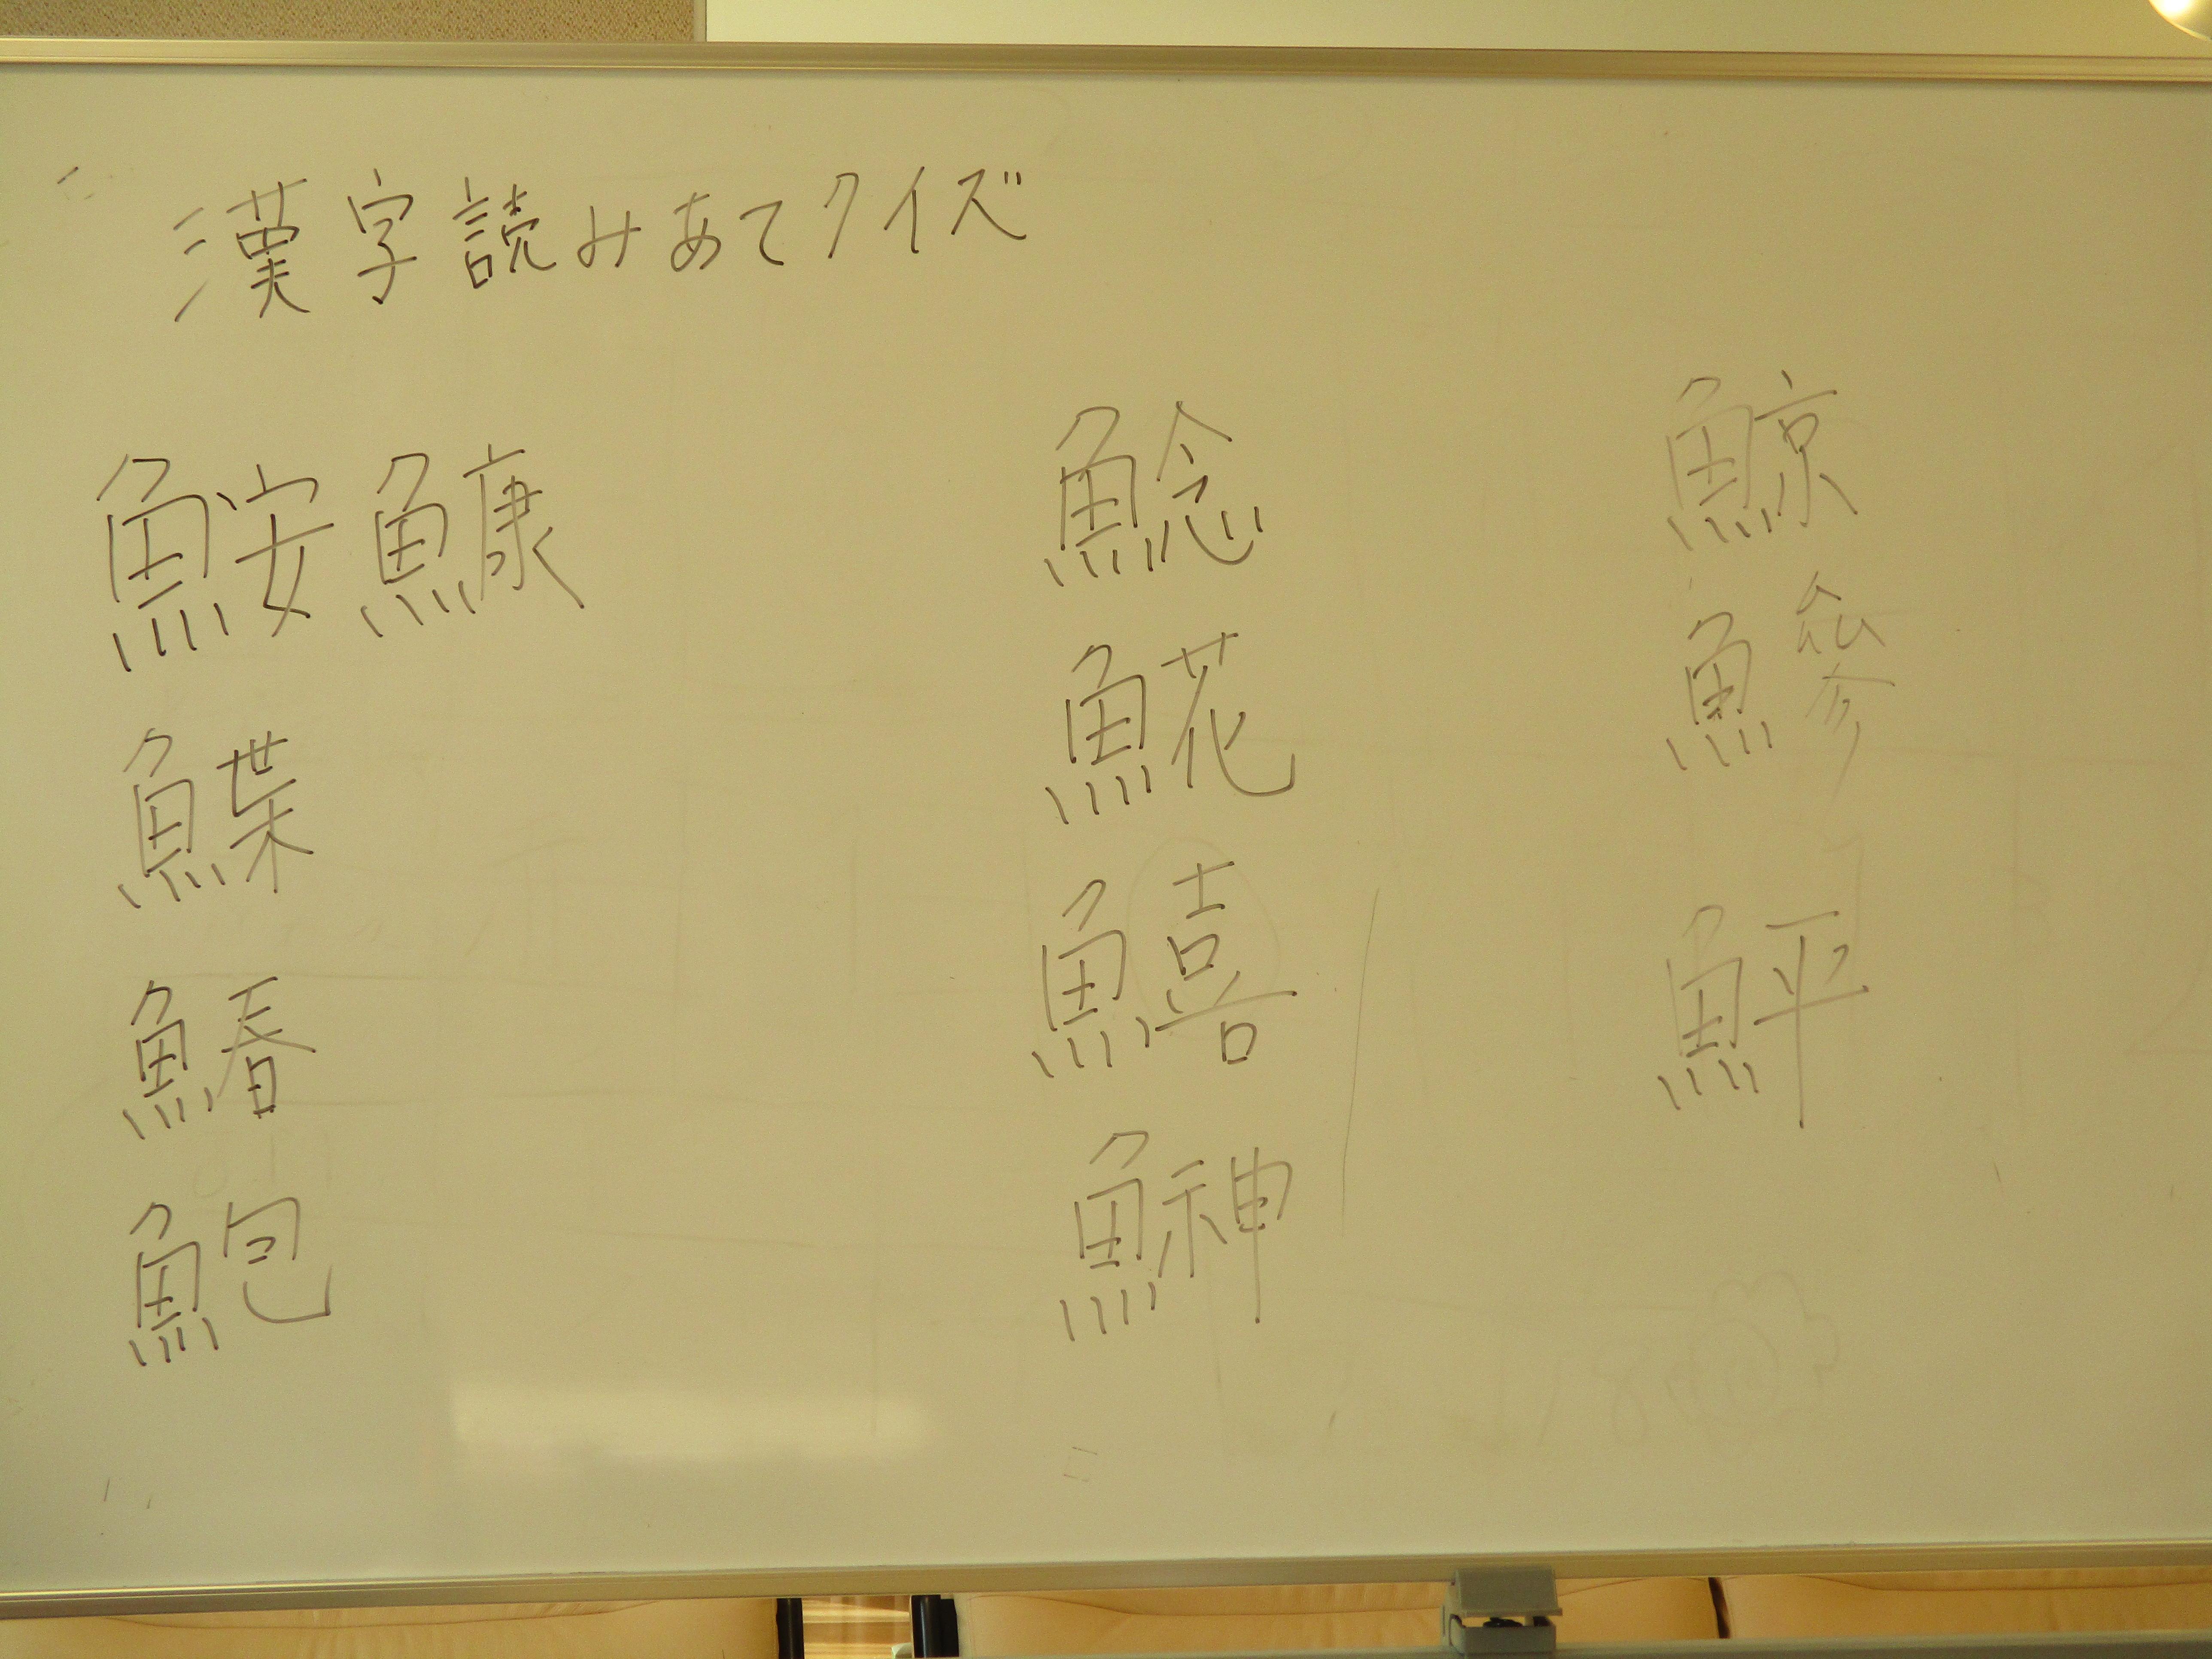 漢字読みあてクイズ
鮟鱇
鰈
鰆
鮑
鯰
魤
鱚
鰰
鯨
鰺
鮃